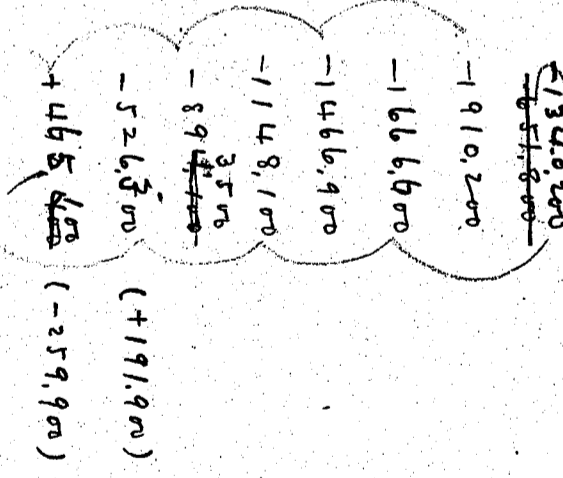 -1340,200
-1910,200
-1666,600
-1466,900
-1148,100
-893,500
-526,300 (+191,900)
+465,600 (-259,900)